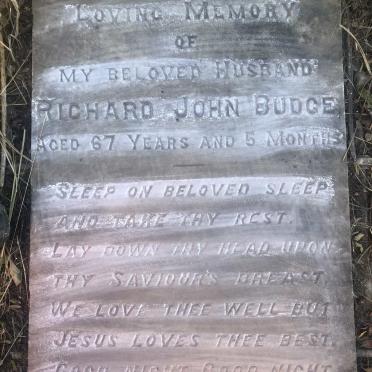 LOVING MEMORY
OF
MY BELOVED HUSBAND
RICHARD JOHN BUDGE
AGED 67 YEARS AND 5 MONTHS
SLEEP ON BELOVED SLEEP
AND TAKE THY REST.
LAY DOWN THY HEAD UPON
THY SAVIOUR'S BREAST,
WE LOVE THEE WELL BUT
JESUS LOVES THEE BEST.
GOOD NIGHT GOOD NIGHT